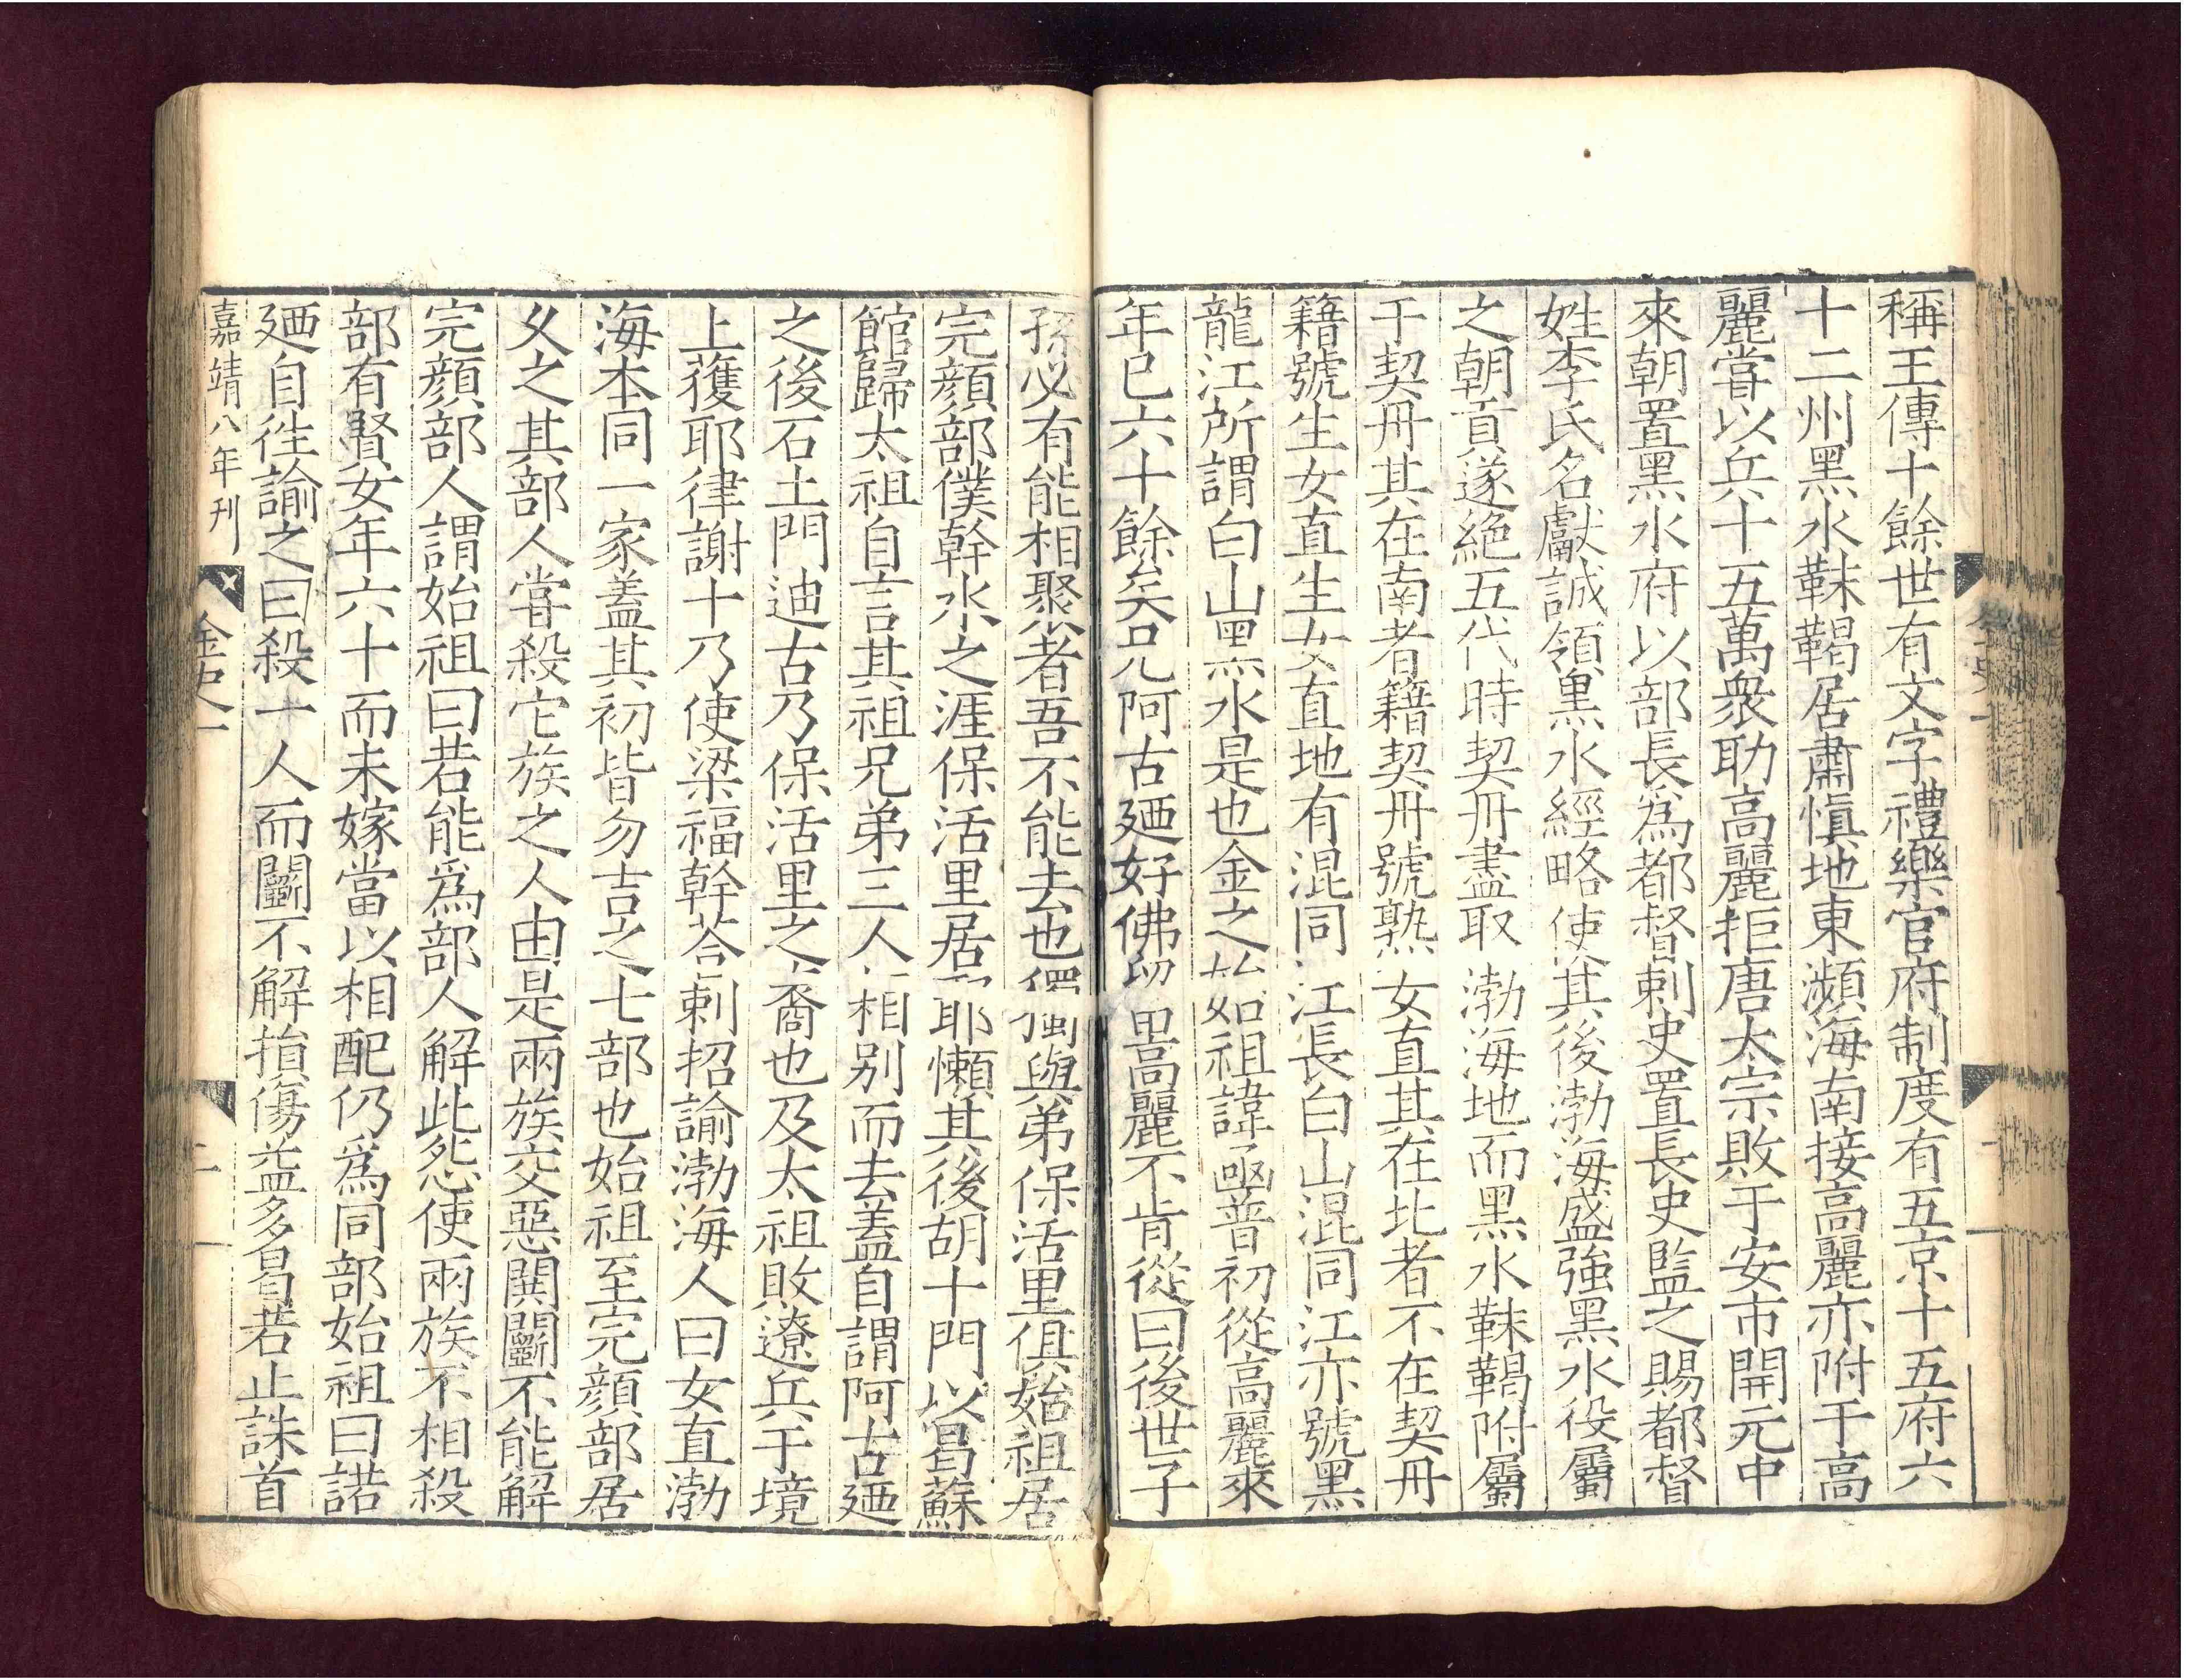 稱王傳十餘世有文字禮樂官府制度有五京十五府六
十二州黑水靺鞨居肅愼地東瀕海南接高麗亦附于高
麗甞以兵十五萬衆助高麗拒唐太宗敗于安市開元中
來朝置黑水府以部長爲都督刺史置長史監之賜都督
姓李氏名獻誠領黑水經略使其後渤海盛強黑水役屬
之朝貢遂絶五代時契丹盡取渤海地而黑水靺鞨附屬
于契丹其在南者籍契丹號熟女直其在北者不在契丹
籍號生女直生女直地有混同江長白山混同江亦號黑
龍江所謂白山黑水是也金之始祖諱凾普初從高麗來
年已六十餘矣兄阿古廼好佛留高麗不肯從曰後世子
孫必有能相聚者吾不能去也獨與弟保活里俱始祖居
完顔部僕幹水之涯保活里居耶懶其後胡十門以曷蘇
館歸太祖自言其祖兄弟三人相别而去蓋自謂阿古廼
之後石土門迪古乃保活里之裔也及太祖敗遼兵于境
上獲耶律謝十乃使梁福幹荅剌招諭渤海人曰女直渤
海本同一家蓋其初皆勿吉之七部也始祖至完顔部居
久之其部人甞殺它族之人由是兩族交惡鬨鬭不能解
完顔部人謂始祖曰若能爲部人解此怨使兩族不相殺
部有賢女年六十而未嫁當以相配仍爲同部始祖曰諾
廼自徃諭之曰殺一人而鬭不解損傷益多曷若止誅首
嘉靖八年刊
金史一
二